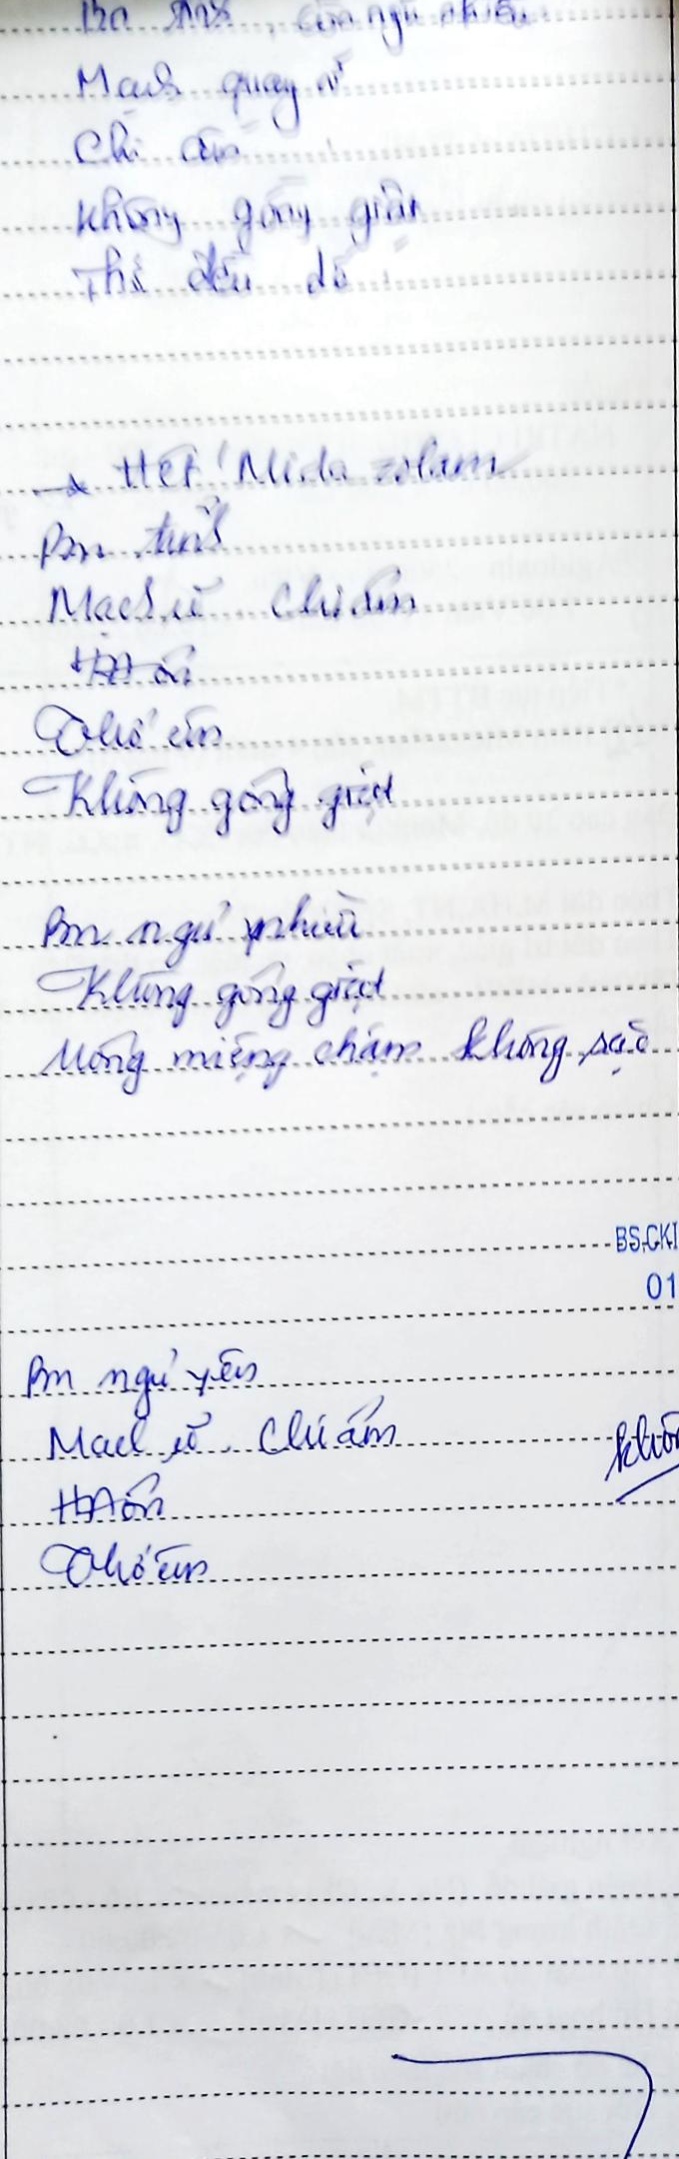 Bn tỉnh, còn ngủ nhiều
Mạch quay rõ
Chi ấm
Không gồng giật
Thở đều dễ
→ Hết Midazolam
Bn tỉnh
Mạch rõ Chi ấm
HA ổn
Thở êm
Không gồng giật
Bn ngủ nhiều
Không gồng giật
Mông miệng chậm không sặc
BS.CKI
01
Bn ngủ yên
Mạch rõ. Chi ấm
HA ổn
Thở êm